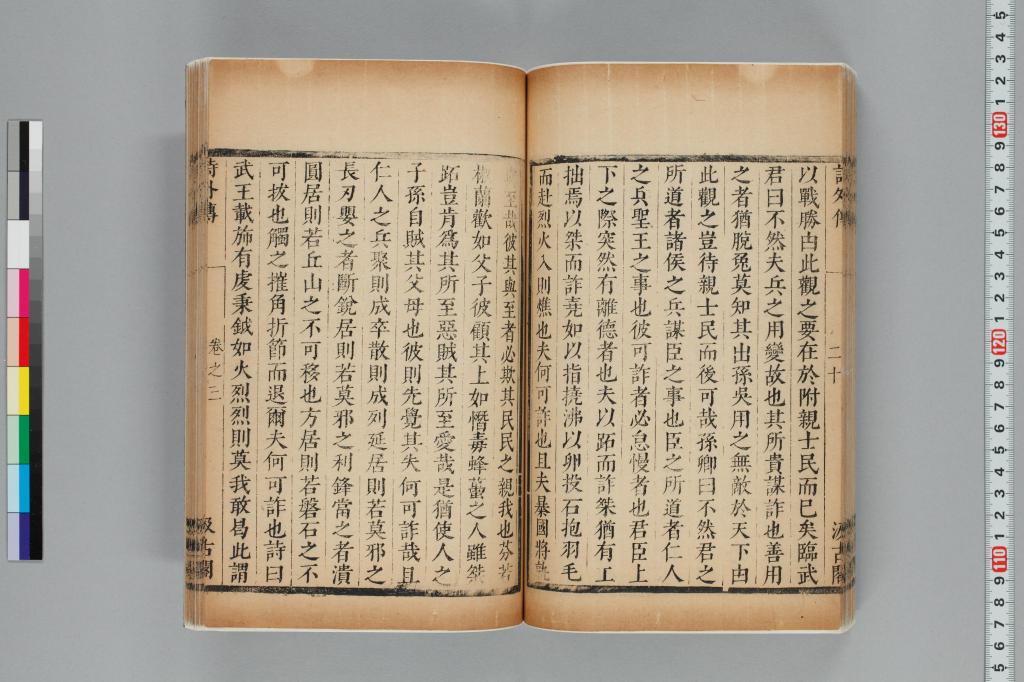 以戰勝由此觀之要在於附親士民而已矣臨武
君曰不然夫兵之用變故也其所貴謀詐也善用
之者猶脫兔莫知其出孫吳用之無敵於天下由
此觀之豈待親士民而後可哉孫卿曰不然君之
所道者諸侯之兵謀臣之事也臣之所道者仁人
之兵聖王之事也彼可詐者必怠慢者也君臣上
下之際突然有離德者也夫以跖而詐桀猶有工
拙焉以桀而詐堯如以指撓沸以卵投石抱羽毛
而赴烈火入則燋也夫何可詐也且夫暴國將孰
與至哉彼其與至者必欺其民民之親我也芬若
椒蘭歡如父子彼顧其上如憯毒蜂蠆之人雖桀
跖豈肯爲其所至惡賊其所至愛哉是猶使人之
子孫自賊其父母也彼則先覺其失何可詐哉且
仁人之兵聚則成卒散則成列延居則若莫邪之
長刃嬰之者斷銳居則若莫邪之利鋒當之者潰
圓居則若丘山之不可移也方居則若磐石之不
可拔也觸之摧角折節而退爾夫何可詐也詩曰
武王載斾有虔秉鉞如火烈烈則莫我敢曷此謂
詩外傳
卷之三
汲古閣
詩外傳
二十
汲古閣
5
4
3
2
1
130
9
8
7
6
5
4
3
2
1
120
9
8
7
6
5
4
3
2
1
110
9
8
7
6
5